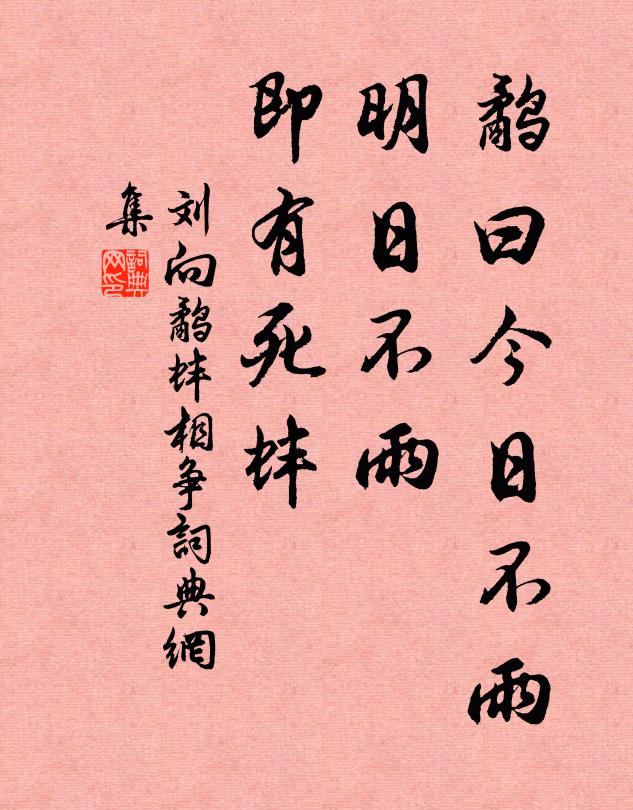 鹬曰今日不雨
明日不雨
即有死蚌
刘向鹬蚌相争詞典網
集
詞典
网印